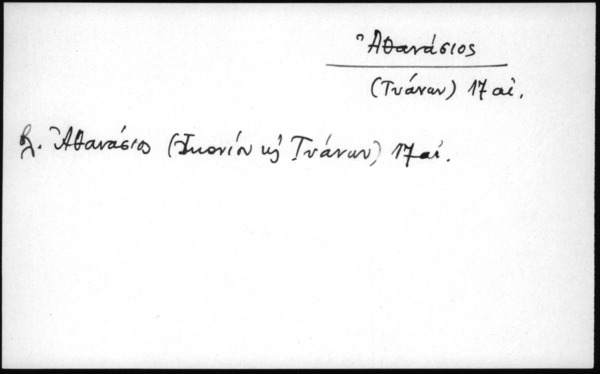 Ἀθανάσιος
(Τυάνων) 17 αἰ.
βλ. Ἀθανάσιος (Ἰκονίου κ̓ Τυάνων) 17 αἰ.